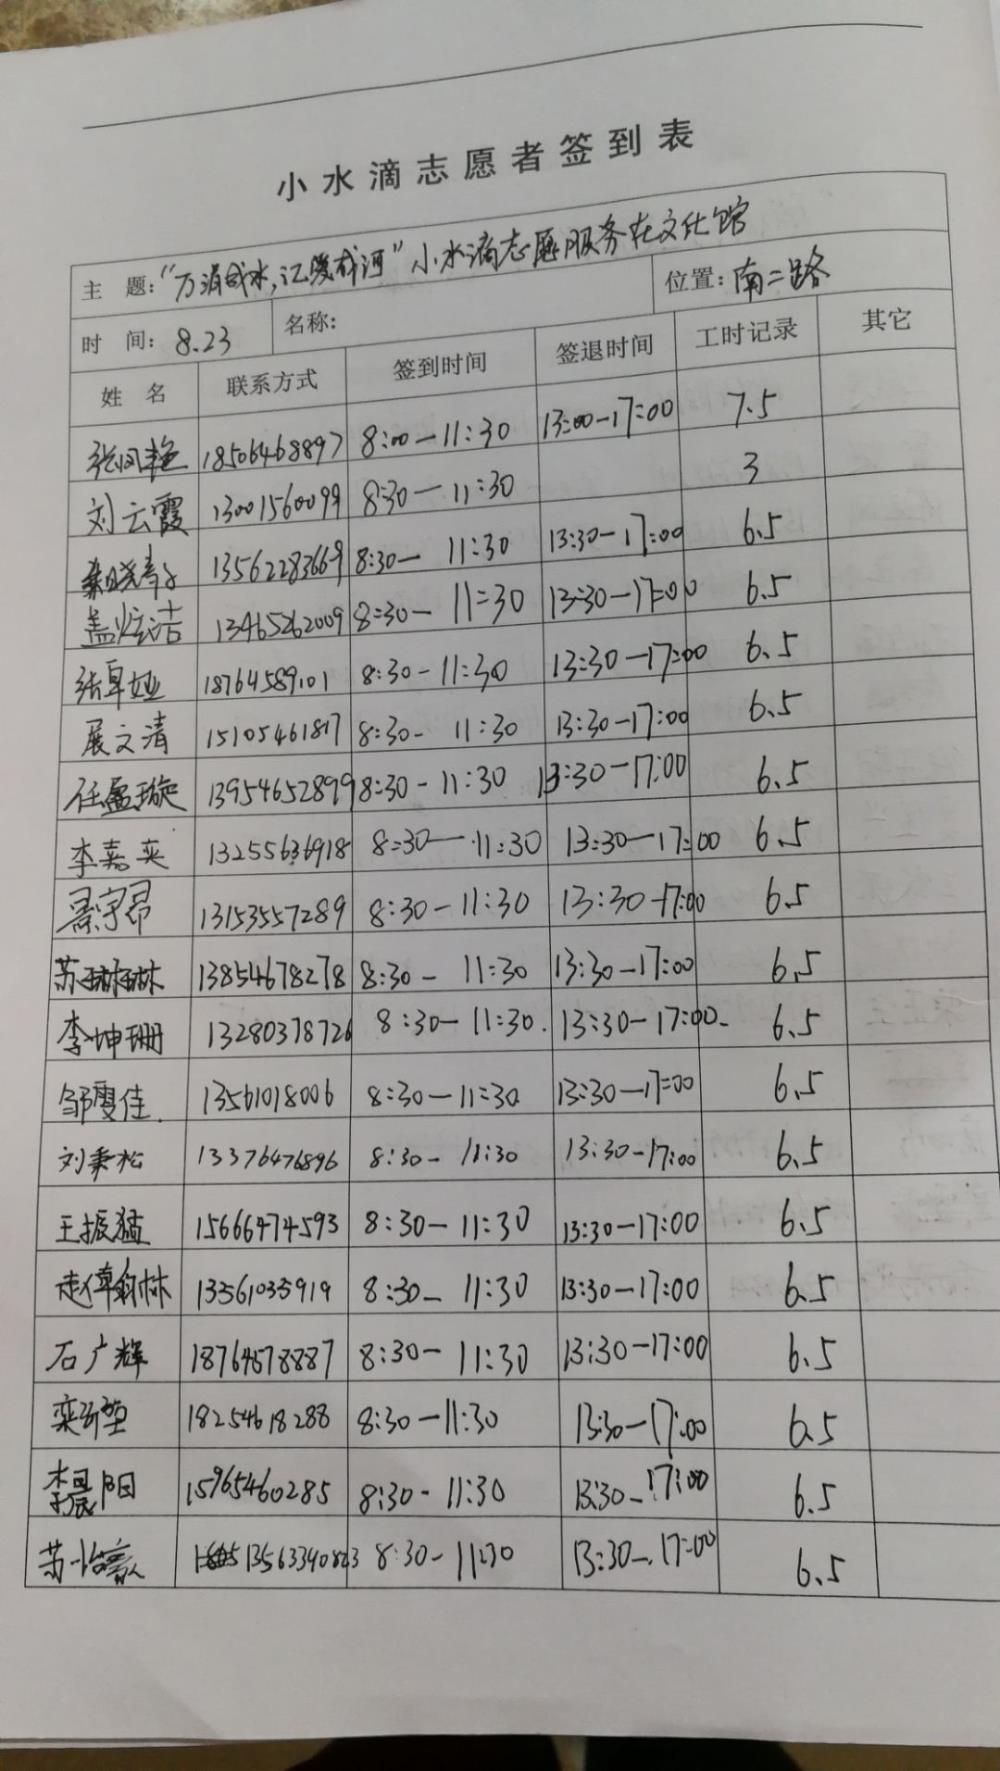 小水滴志愿者签到表
主 题：“万涓成水，汇爱成河”小水滴志愿服务在文化馆 位置：南二路
时 间：8.23 名称：
姓 名 联系方式 签到时间 签退时间 工时记录 其它
张凤艳 18506468897 8:00—11:30 13:00—17:00 7.5
刘云霞 13001560099 8:30—11:30 3
13562283669 8:30— 11:30 13:30—17:00 6.5
盖炫洁 13465262009 8:30— 11:30 13:30—17:00 6.5
张卓娅 18764589101 8:30-11:30 13:30—17:00 6.5
展文清 15105461817 8:30- 11:30 13:30-17:00 6.5
任孟璇 13954652899 8:30-11:30 13:30-17:00 6.5
李嘉奕 13255636918 8:30—11:30 13:30—17:00 6.5
13153557289 8:30—11:30 13:30-17:00 6.5
苏琳琳 13854678278 8:30- 11:30 13:30-17:00 6.5
李坤珊 13280378726 8:30—11:30. 13:30—17:00- 6.5
邹雯佳. 13561018006 8:30—11:30 13:30—17:00 6.5
刘秉松 13376476896 8:30- 11:30 13:30-17:00 6.5
王振猛 15666474593 8:30-11:30 13:30-17:00 6.5
13561035919 8:30- 11:30 13:30-17:00 6.5
石广辉 18764578887 8:30- 11:30 13:30-17:00 6.5
18254618288 8:30—11:30 13:30—17:00 6.5
李晨阳 15965460285 8:30-11:30 13:30-17:00 6.5
苏怡豪 13563340823 8:30-11:30 13:30-17:00 6.5